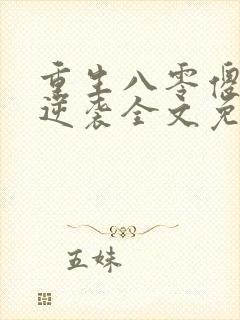 重生八零傻
逆袭全文免
五妹